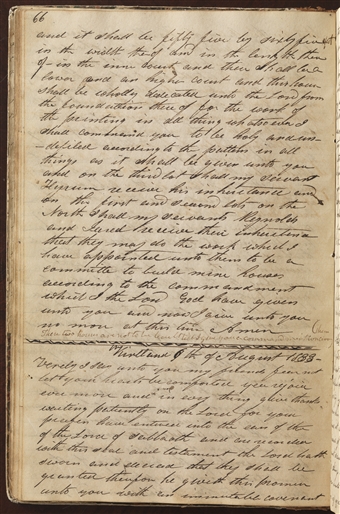 66
and it shall be fifty five by sixty five feet
in the width thereof and in the length there
of in the inner court and there shall be a
lower and an higher court and this house
shall be wholly dedicated unto the Lord from
the foundation thereof for the work of
the printing in all things whatsoever I
shall command you to be holy and un
defiled according to the pattern in all
things as it shall be given unto you
and on the third lot shall my servant
Hyrum receive his inheritance and
on the first and second lots on the
North shall my servants Reynolds
and Jared receive their inheritance
that they may do the work which I
have appointed unto them to be a
committe to build mine houses
according to the commandment
which I the Lord God have given
unto you and now I give unto you
no more at this time Amen
Kirtland 6th of August 1833
Verily I say unto you my friends fear not
let your hearts be comforted yea rejoice
ever more and in every thing give thanks
waiting patiently on the Lord for your
prayers have entered into the ears of the
of the Lord of Sabbaoth and are recorded
with this seal and testament the Lord hath
sworn and decreed that they shall be
granted therefore he giveth this promise
unto you with an immutable covenant